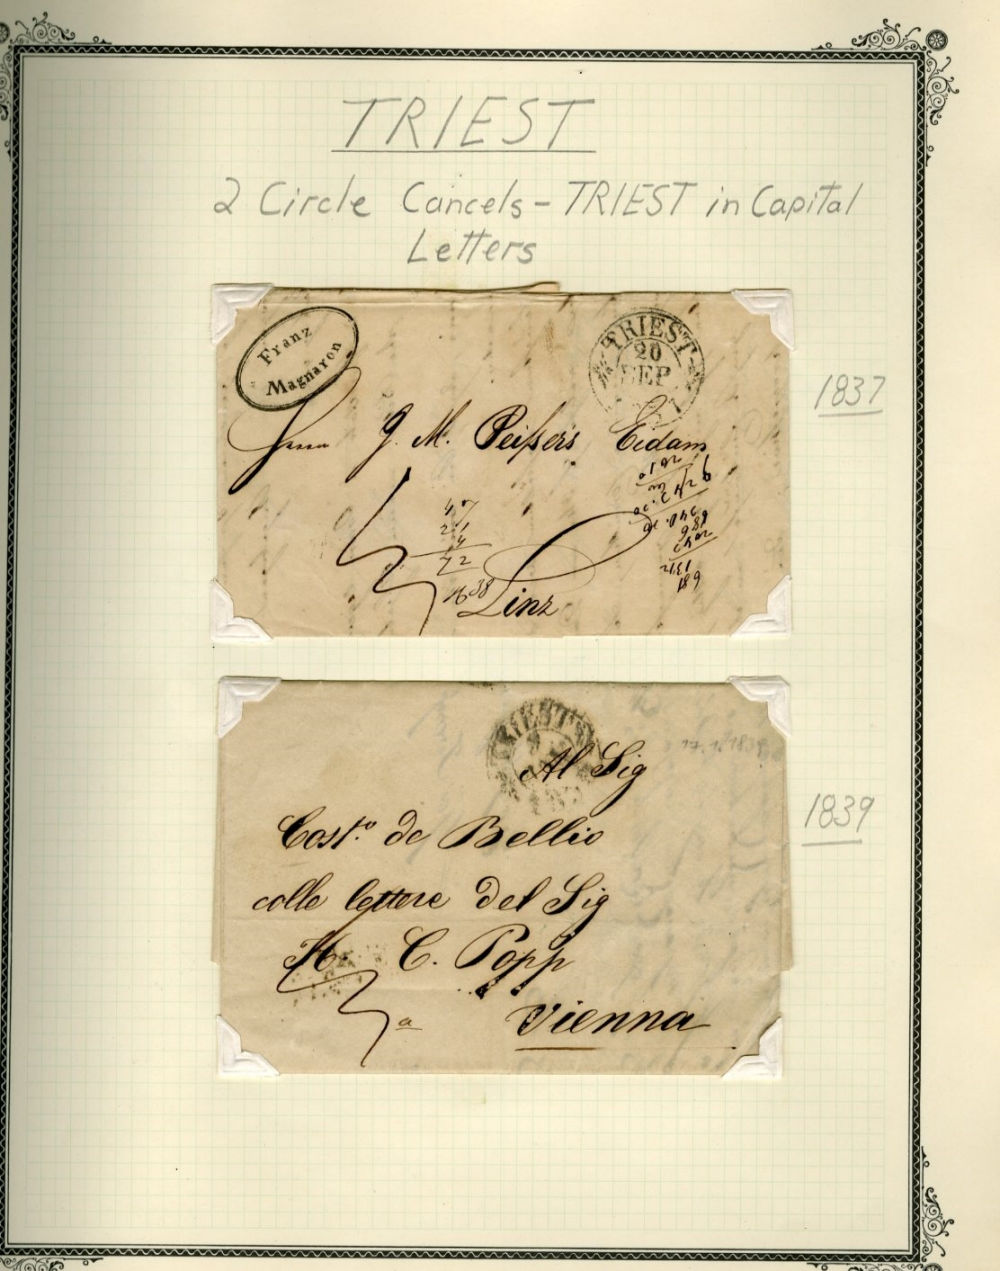 TRIEST
2 Circle Cancels - TRIEST in Capital
Letters
Franz
Magnaron
TRIEST
20
SEP
1837
Herrn J. M. Peißers Eidam
Linz
1839
TRIEST
Al Sig
Cost.o de Bellio
colle lettere del Sig
C. Popp
Vienna